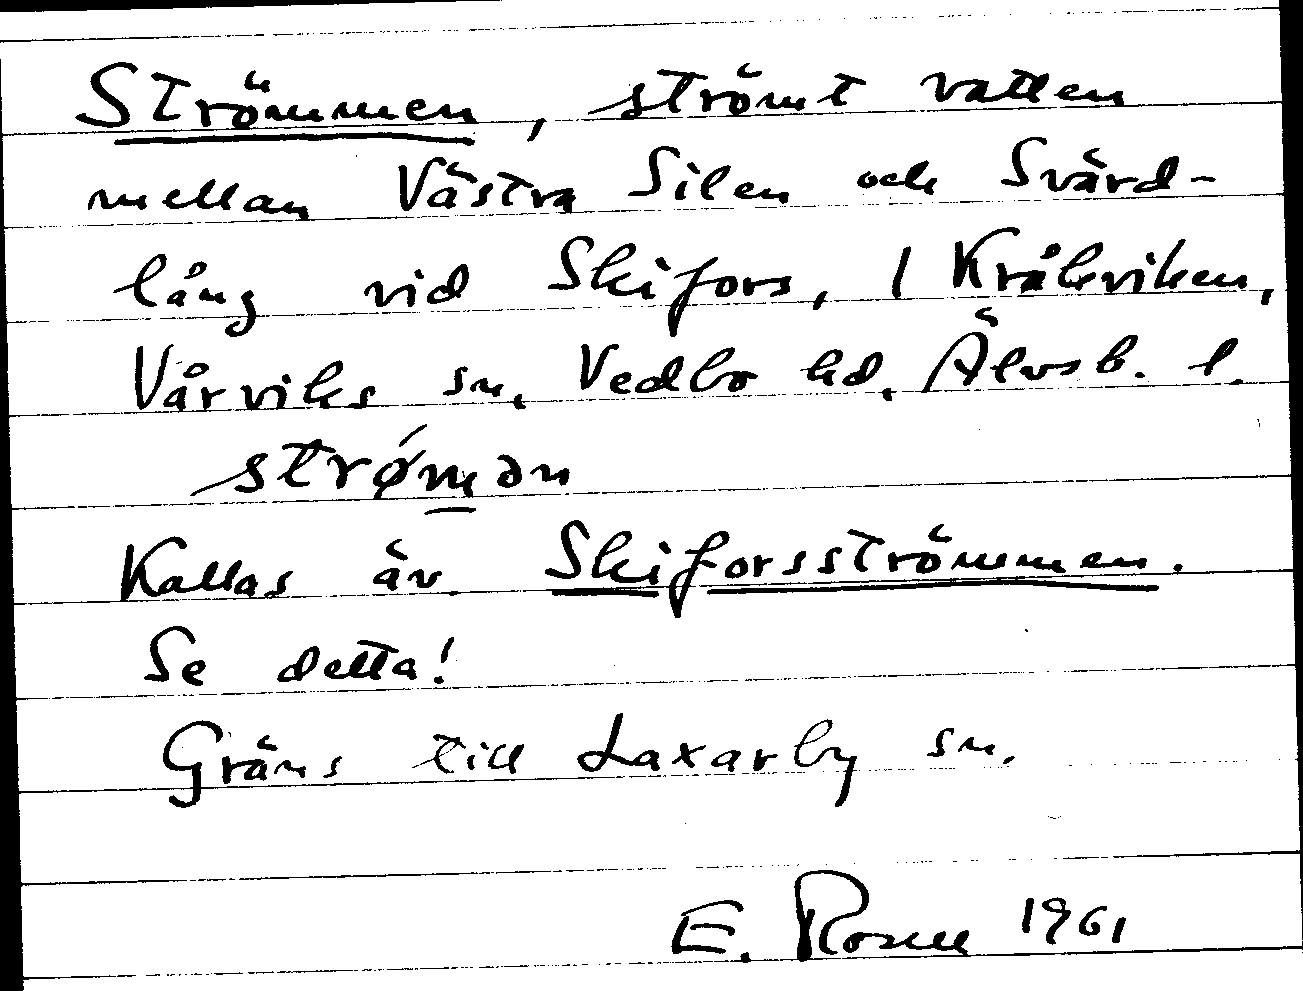 Strömmen, strömt vatten
mellan Västra Silen och Svärd-
lång vid Skifors, / Kråkviken,
Vårviks sn, Vedbo hd, Älvsb. l.
strǿm̲ən
Kallas äv. Skiforsströmmen.
Se detta!
Gräns till Laxarby sn.
E. Rosell 1961